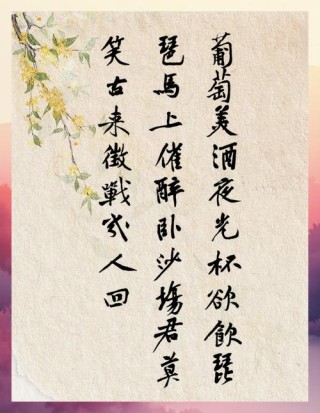 葡萄美酒夜光杯欲飲琵
琶馬上催醉卧沙塲君莫
笑古来徵戰幾人回